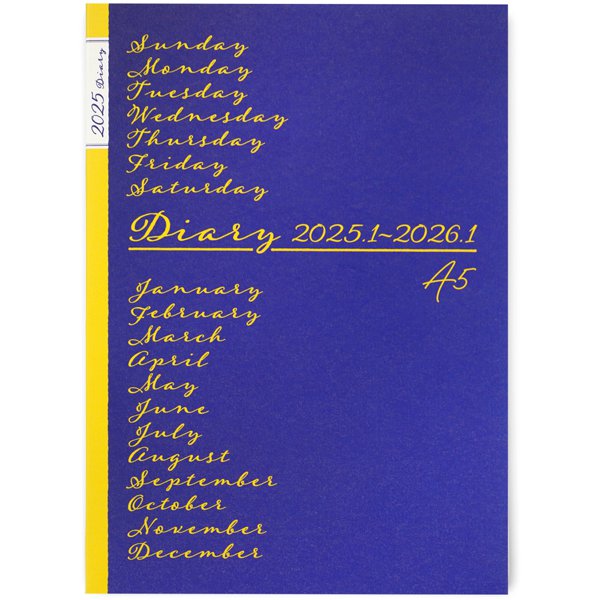 2025 Diary
Sunday
Monday
Tuesday
Wednesday
Thursday
Friday
Saturday
Diary 2025.1~2026.1
A5
January
February
March
April
May
June
July
August
September
October
November
December